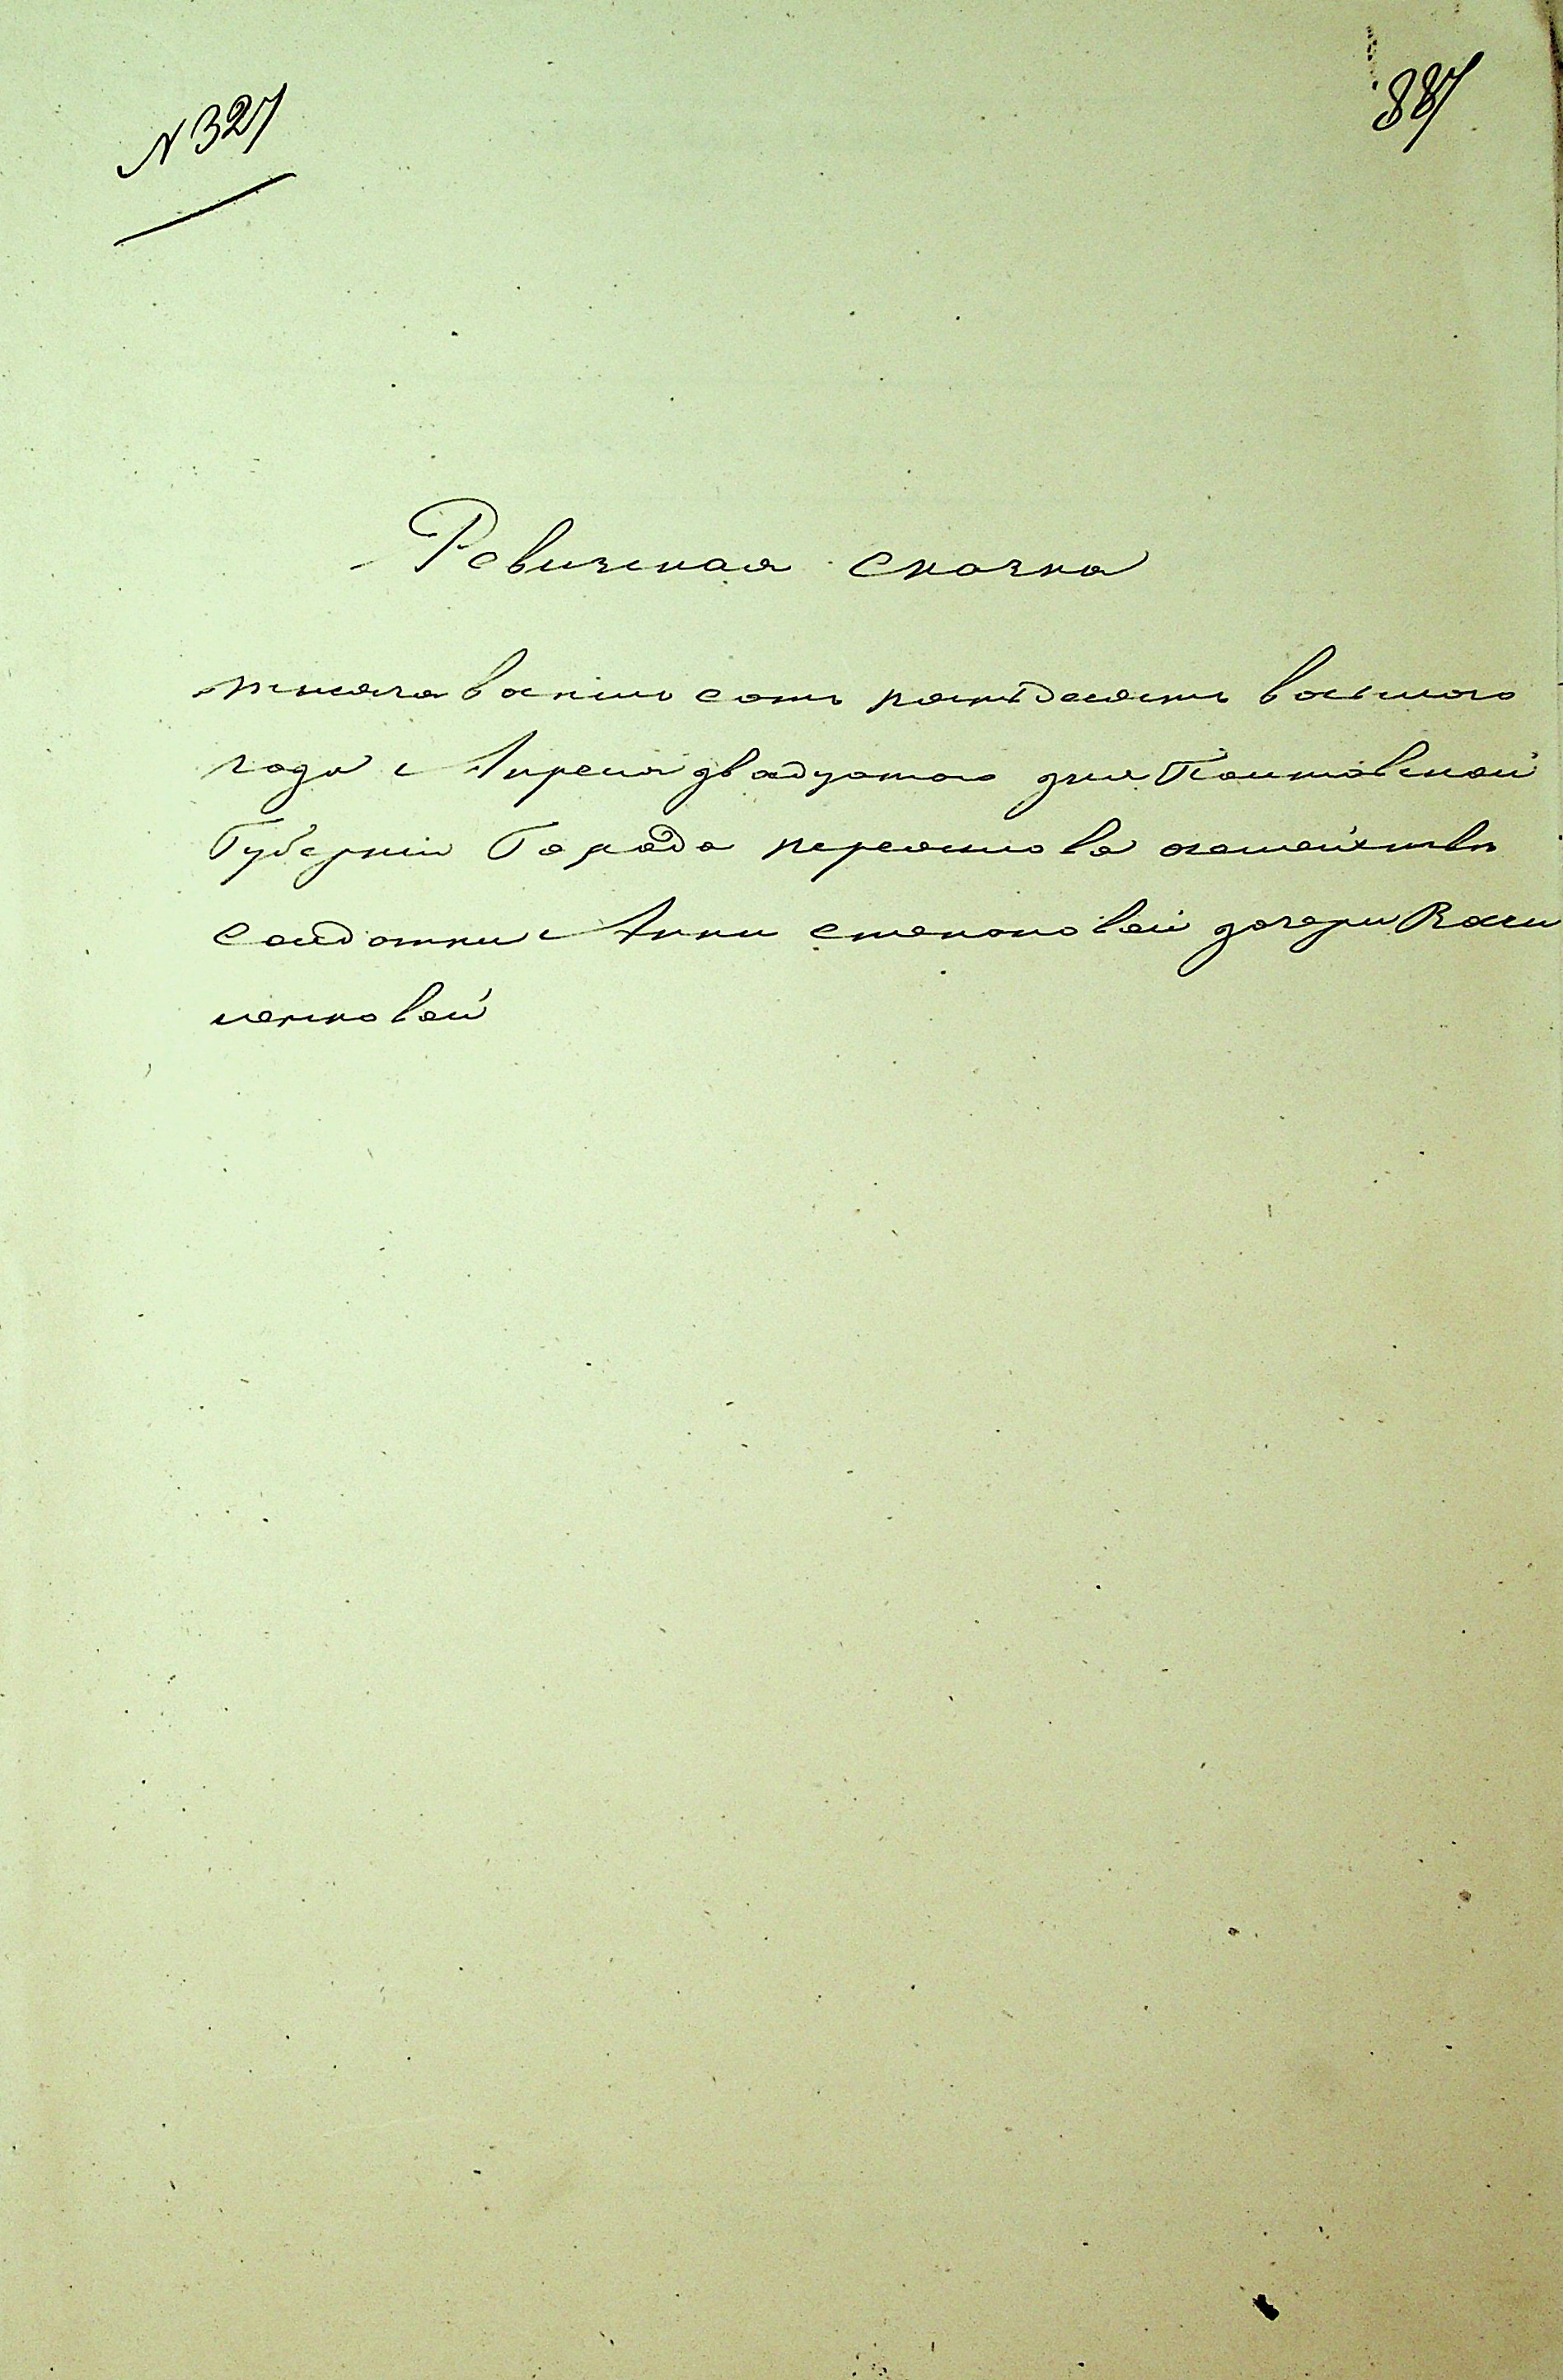 N 327
887
Ревизская сказка
тысяча восемь сотъ пятьдесятъ восьмого
года Апреля двадцатого дня Полтавской
Губерніи Города переяслова
солдатки Анны степановой дочери Васи
ленковой